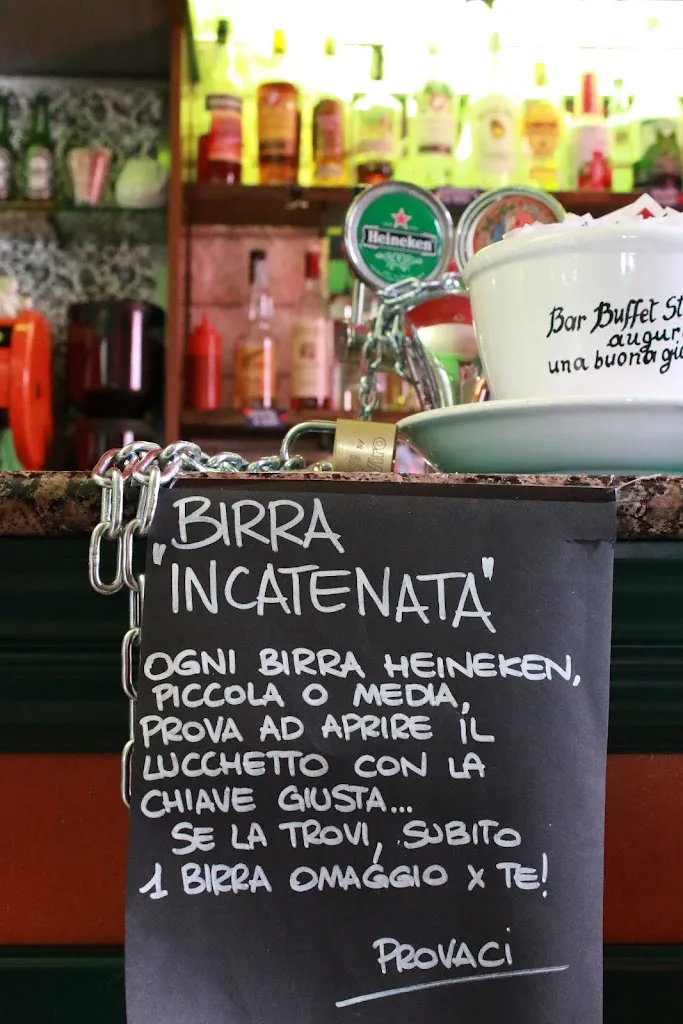 Heineken
Bar Buffet
una buona
"BIRRA
"INCATENATA"
OGNI BIRRA HEINEKEN,
PICCOLA O MEDIA,
PROVA AD APRIRE IL
LUCCHETTO CON LA
CHIAVE GIUSTA...
SE LA TROVI, SUBITO
1 BIRRA OMAGGIO X TE!
PROVACI